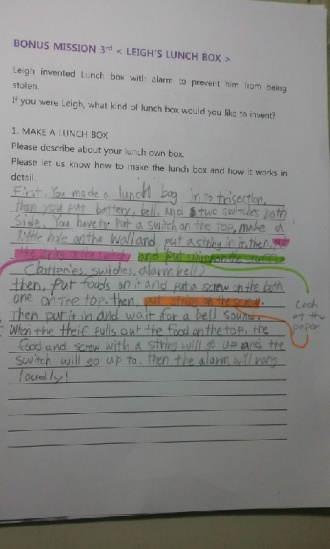 BONUS MISSION 3rd < LEIGH'S LUNCH BOX >
Leigh invented Lunch box with alarm to prevent him from being
stolen.
If you were Leigh, what kind of lunch box would you like to invent?
1. MAKE A LUNCH BOX
Please describe about your lunch own box.
Please let us know how to make the lunch box and how it works in
detail.
First, You made a lunch bag in to trisection,
Than you put battery, bell, and two switches both
side. You have to put a switch on the top, make a
little hole on the wall and put a string in it, then, put
the string on the switch and put
(batteries, switches, alarm bell)
then, put foods on it and put a screw on the both
one on the top. then, put string on the screw.
Then put it in and wait for a bell sound.
When the theif pulls out the food on the top, the
food and screw with a string will go up and the
switch will go up to, then the alarm will rang
loudly!
Look
at the
paper